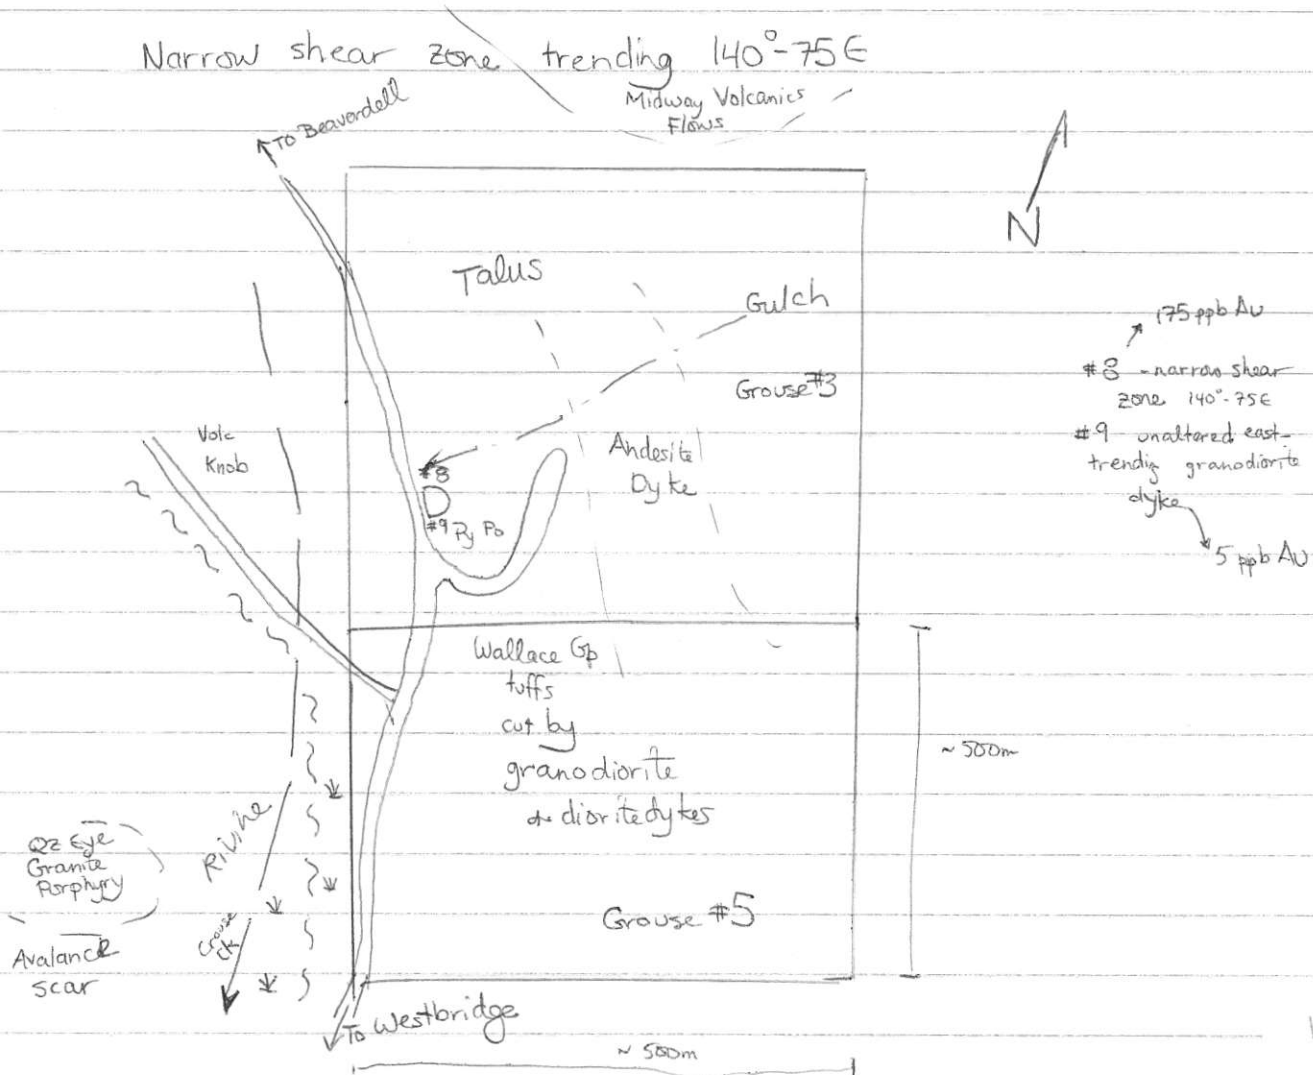 Narrow shear zone trending 140°-75E
Midway Volcanics
Flows
To Beaverdell
N
Talus
Gulch
175 ppb Au
Grouse #3
#8 - narrow shear
zone 140°-75E
#9 unaltered east-
trendig granodiorite
dyke
5 ppb Au
Volc
Knob
Andesite
Dyke
#8
#9 Py Po
Wallace Gp
tuffs
cut by
granodiorite
diorite dykes
~ 500m
Rivine
Qz Eye
Granite
Porphyry
Grouse #5
Grouse
Ck
Avalance
scar
To Westbridge
~ 500m